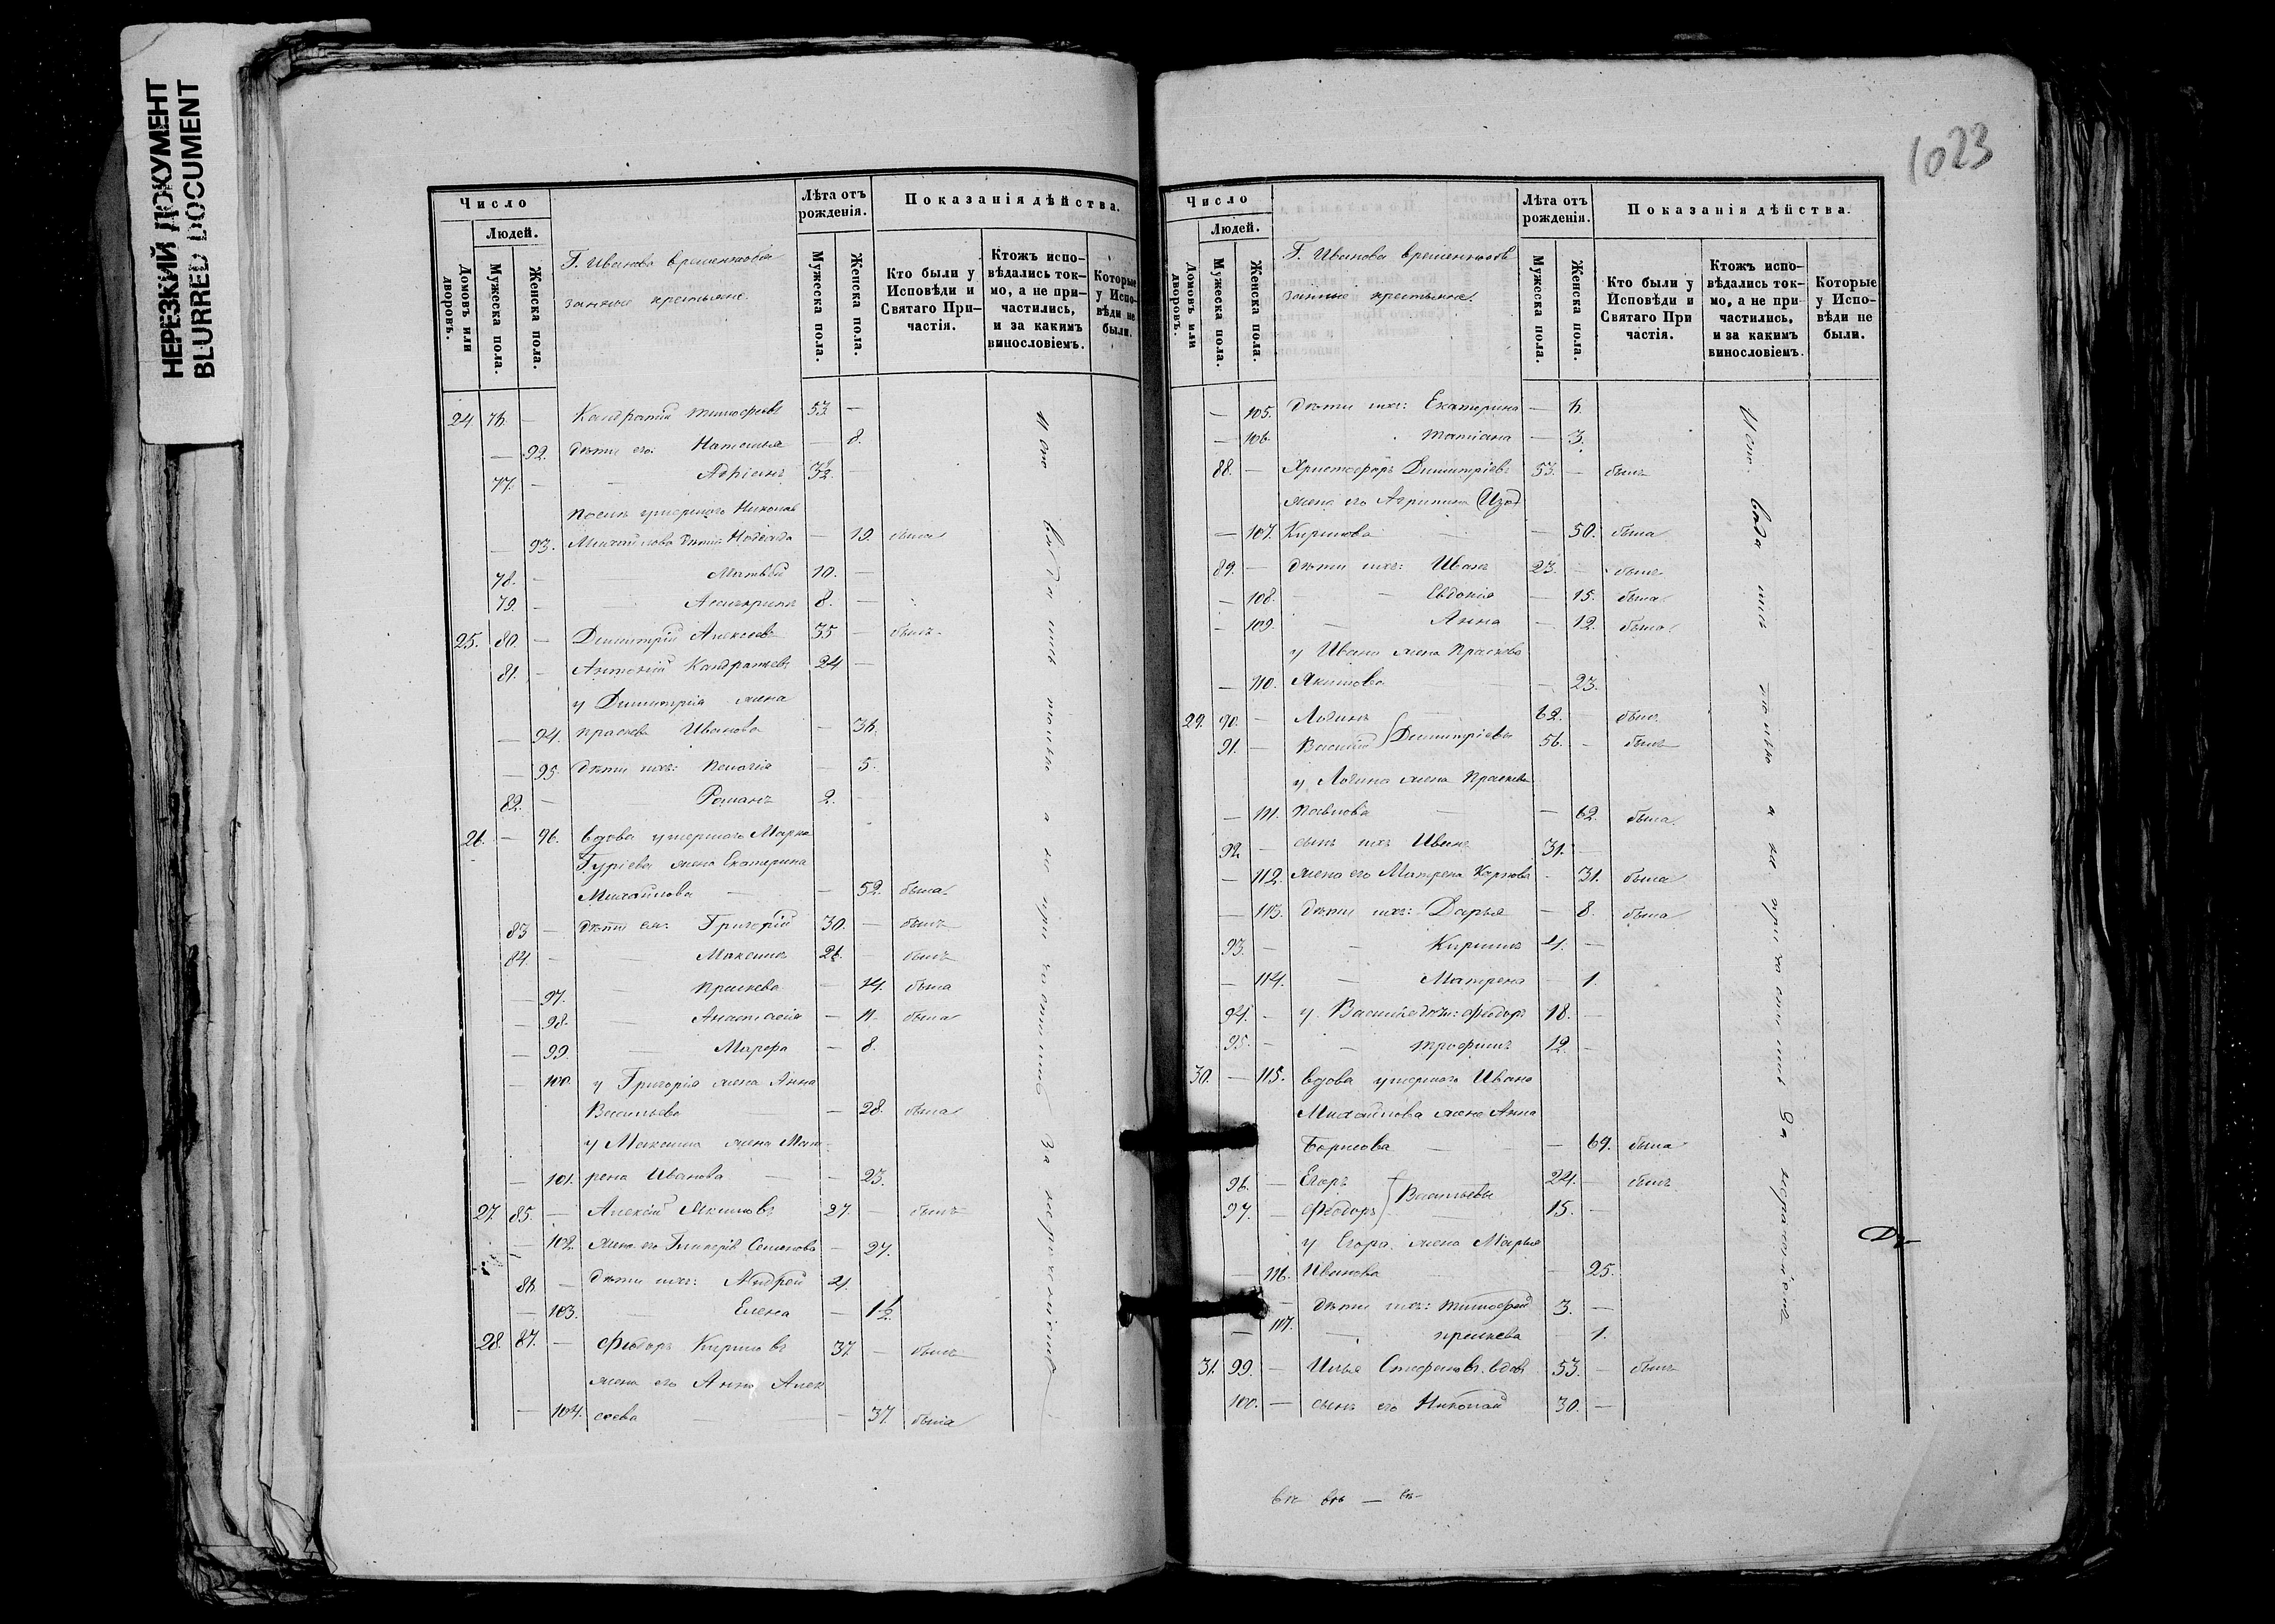 НЕРЕЗКИЙ ДОКУМЕНТ
BLURRED DOCUMENT
1023
Число
Людей.
Домовъ или дворовъ.
Мужеска пола.
Женска пола.
Г. Иванова временнообя
занные крестьяне.
Лѣта отъ рожденія.
Мужеска пола.
Женска пола.
Показанія дѣйства.
Кто были у Исповѣди и Святаго При-частія.
Ктожъ испо-вѣдались ток-мо, а не при-частились, и за какимъ винословіемъ.
Которые у Испо-вѣди не были.
24. 76. — Кандратій Тимофеевъ 53 —
— 92. дѣти его: Наталья — 8.
77. — — Адріанъ —
послѣ умершаго Николая
— 93. Михайлова дѣти Надежда — 19. была
78. — Матвѣй 10. —
79. — — 8. —
25. 80. — Димитрій Алексеевъ 35 — былъ
81. — Антоній Кандратьевъ 24 —
у Димитрія жена
— 94. Праскева Иванова — 36.
— 95. дѣти ихъ: Пелагія — 5.
82. — Романъ 2. —
26. — 96. вдова умершаго Марка
Гуріева жена Екатерина
Михайлова — — 52. была
83 — дѣти ея: Григорій 30. — былъ
84. — — Максимъ 26. — былъ
— 97. — Праскева — 14. была
— 98. — Анастасія — 11. была
— 99 — Марфа — 8.
— 100. у Григорія жена Анна
Васильева — — 28. была
у Максима жена Мат-
— 101. рена Иванова — — 23.
27. 85. — Алексій Якимовъ 27. — былъ
— 102. жена его Гликерія Семенова — 27.
86. — дѣти ихъ: Андрей 4.
— 103. — Елена — 1½
28. 87. — Фиодоръ Кириловъ 37 — былъ
жена его Анна Алек
— 104. сеева — 37 была
Исповѣдались токмо а не причастились За нерасположеніемъ
Число
Людей.
Домовъ или дворовъ.
Мужеска пола.
Женска пола.
Г. Иванова временнообя
занные крестьяне.
Лѣта отъ рожденія.
Мужеска пола.
Женска пола.
Показанія дѣйства.
Кто были у Исповѣди и Святаго При частія.
Ктожъ испо-вѣдались ток-мо, а не при-частились, и за какимъ винословіемъ.
Которые у Испо-вѣди не были.
— 105. дѣти ихъ: Екатерина — 6.
— 106. Татіана — 3.
88. — Христофоръ Димитріевъ 53. — былъ
жена его Агрипина
— 107. Кирилова — — 50. была
89. — дѣти ихъ: Иванъ 23. — былъ
— 108. — Евдокія — 15. была
— 109. — Анна — 12. была
у Ивана жена Праскева
— 110. Якимова — 23.
29. 90. — Логинъ 62. — былъ
91. — Василій } Димитріевы 56. — былъ
у Логина жена Праскева
— 111. Павлова — — 62. была
92 — сынъ ихъ Иванъ 31. —
— 112. жена его Матрена Карпова — 31. была
— 113. дѣти ихъ: Дарья — 8. была
93. — — Кирилъ 4. —
— 114. — Матрена — 1.
94. — у Василія дѣти: Фиодоръ 18. —
95. — — Трофимъ 12. —
30. — 115. вдова умершаго Ивана
Михайлова жена Анна
Борисова — — 69. была
96. — Егоръ 24. — былъ
97. — Фиодоръ } Васильевы 15. —
у Егора жена Марья
— 116. Иванова — — 25.
— дѣти ихъ: Тимофей 3. —
— 117. — Праскева — 1.
31. 99. — Илья Стефановъ вдовъ 53. — былъ
100. — сынъ его Николай 30. —